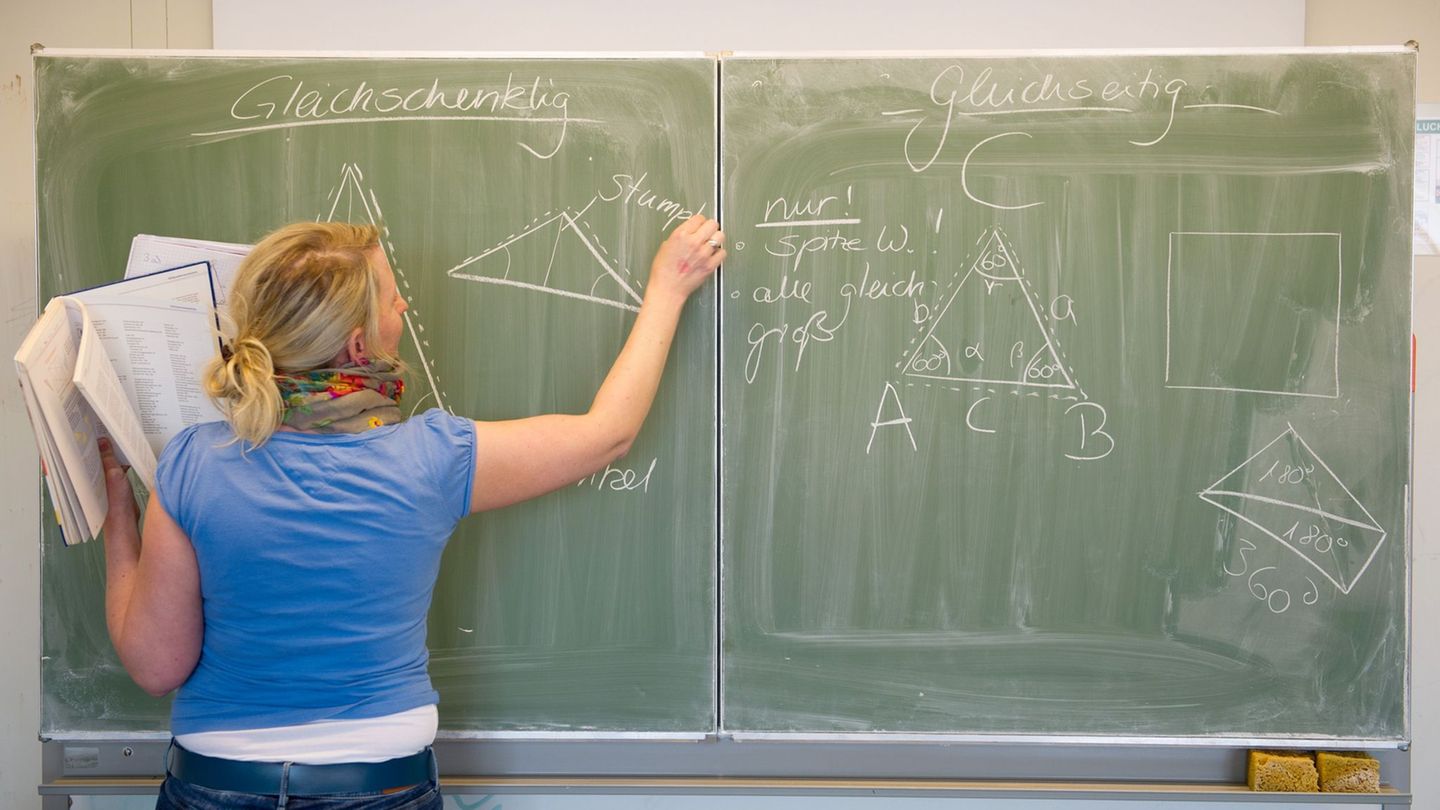 Gleichschenklig
Stumpf
Gleichseitig
C
nur!
• spitze W. !
• alle gleich
groß
60°
γ
b
a
60°
α
β
60°
A
C
B
180°
180°
360°
3a
LUCH